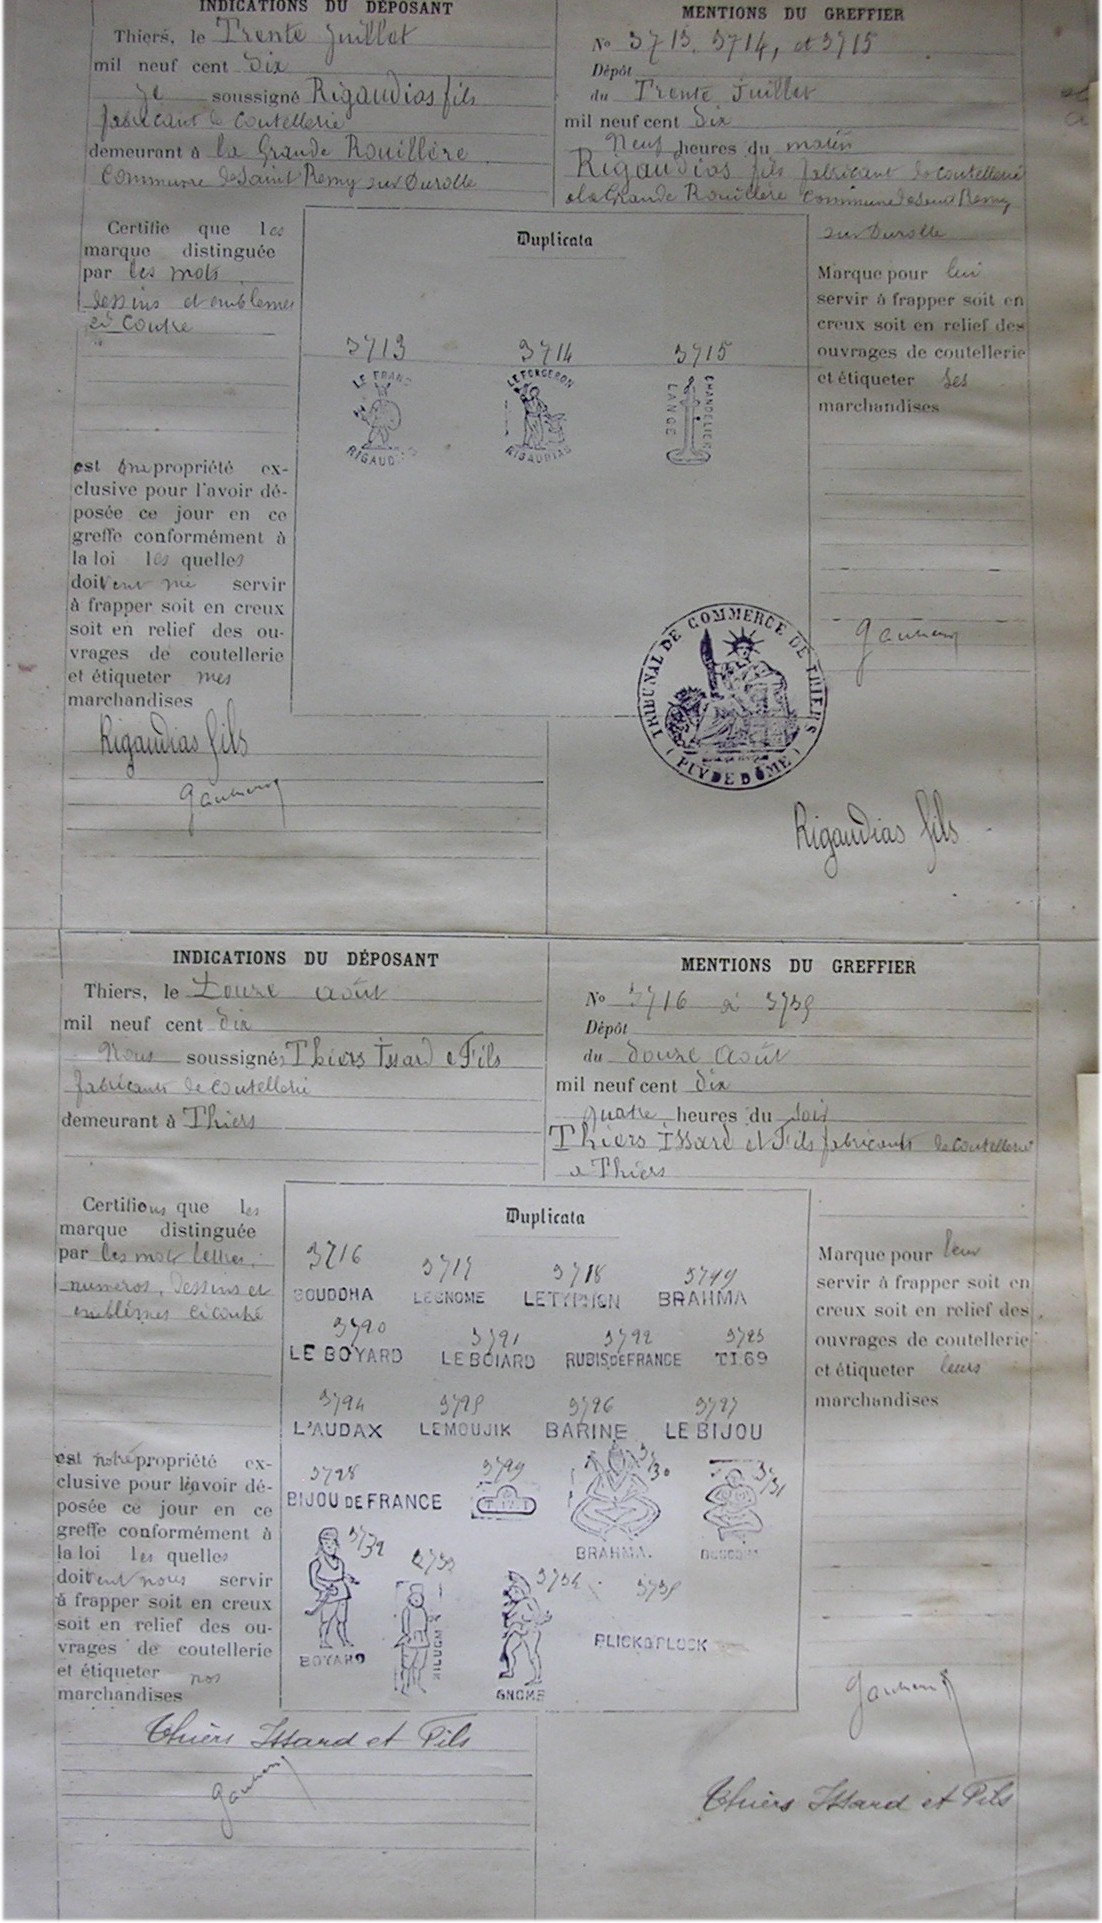 INDICATIONS DU DÉPOSANT
Thiers, le Trente Juillet
mil neuf cent dix
Je soussigné Rigaudias fils
fabricant de coutellerie
demeurant à la Grande Rouillère
Commune de Saint Remy sur Durolle
MENTIONS DU GREFFIER
No 3713, 3714, et 3715
Dépôt
du Trente Juillet
mil neuf cent dix
Neuf heures du matin
Rigaudias fils fabricant de coutellerie
a la Grande Rouillère Commune de Saint Remy
sur Durolle
Certifie que les
marque distinguée
par les mots
dessins et emblemes
ci contre
est propriété ex-
clusive pour l'avoir dé-
posée ce jour en ce
greffe conformément à
la loi les quelles
doivent me servir
à frapper soit en creux
soit en relief des ou-
vrages de coutellerie
et étiqueter mes
marchandises
Rigaudias fils
Duplicata
3713 3714 3715
LE FRANC
RIGAUDIAS
LE FORGERON
RIGAUDIAS
LANGE
CHANDELIER
Marque pour lui
servir à frapper soit en
creux soit en relief des
ouvrages de coutellerie
et étiqueter ses
marchandises
TRIBUNAL DE COMMERCE DE THIERS
( PUY DE DÔME )
Rigaudias fils
INDICATIONS DU DÉPOSANT
Thiers, le Douze août
mil neuf cent dix
Nous soussignés Thiers Issard e Fils
fabricants de coutellerie
demeurant à Thiers
MENTIONS DU GREFFIER
No 3716 à 3735
Dépôt
du douze août
mil neuf cent dix
quatre heures du soir
Thiers Issard et Fils fabricants de coutellerie
a Thiers
Certifions que les
marque distinguée
par les mots lettres,
numeros, dessins et
emblêmes ci contre
est notre propriété ex-
clusive pour l'avoir dé-
posée ce jour en ce
greffe conformément à
la loi les quelles
doivent nous servir
à frapper soit en creux
soit en relief des ou-
vrages de coutellerie
et étiqueter nos
marchandises
Thiers Issard et Fils
Duplicata
3716 3717 3718
BOUDDHA LE GNOME LE TYPHON BRAHMA
LE BOYARD LE BOIARD RUBIS DE FRANCE T.I.69
L'AUDAX LE MOUJIK BARINE LE BIJOU
BIJOU DE FRANCE
BRAHMA.
BOYARD
MOUJIK
GNOME
Marque pour leur
servir à frapper soit en
creux soit en relief des
ouvrages de coutellerie
et étiqueter leurs
marchandises
Thiers Issard et Fils